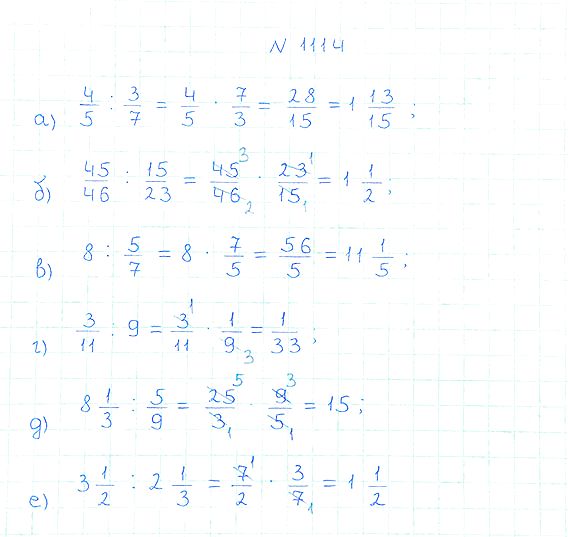 N 1114
а) 4/5 : 3/7 = 4/5 · 7/3 = 28/15 = 1 13/15 ;
б) 45/46 : 15/23 = 45 3/46 2 · 23 1/15 1 = 1 1/2 ;
в) 8 : 5/7 = 8 · 7/5 = 56/5 = 11 1/5 ;
г) 3/11 : 9 = 3 1/11 · 1/9 3 = 1/33 ;
д) 8 1/3 : 5/9 = 25 5/3 1 · 9 3/5 1 = 15 ;
е) 3 1/2 : 2 1/3 = 7 1/2 · 3/7 1 = 1 1/2